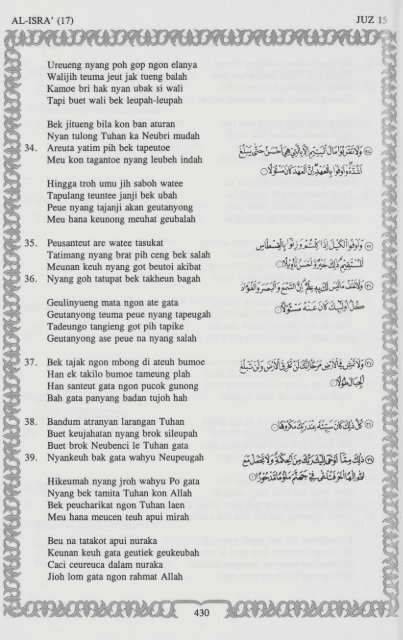 AL-ISRA' (17) JUZ 15
Ureueng nyang poh gop ngon elanya
Walijih teuma jeut jak tueng balah
Kamoe bri hak nyan ubak si wali
Tapi buet wali bek leupah-leupah
Bek jitueng bila kon ban aturan
Nyan tulong Tuhan ka Neubri mudah
34. Areuta yatim pih bek tapeutoe
Meu kon tagantoe nyang leubeh indah
Hingga troh umu jih saboh watee
Tapulang teuntee janji bek ubah
Peue nyang tajanji akan geutanyong
Meu hana keunong meuhat geubalah
وَلَا تَقْرَبُوا مَالَ الْيَتِيمِ إِلَّا بِالَّتِي هِيَ أَحْسَنُ حَتَّىٰ يَبْلُغَ
أَشُدَّهُ وَأَوْفُوا بِالْعَهْدِ إِنَّ الْعَهْدَ كَانَ مَسْئُولًا
35. Peusanteut are watee tasukat
Tatimang nyang brat pih ceng bek salah
Meunan keuh nyang got beutoi akibat
وَأَوْفُوا الْكَيْلَ إِذَا كِلْتُمْ وَزِنُوا بِالْقِسْطَاسِ
الْمُسْتَقِيمِ ذَٰلِكَ خَيْرٌ وَأَحْسَنُ تَأْوِيلًا
36. Nyang goh tatupat bek takheun bagah
Geulinyueng mata ngon ate gata
Geutanyong teuma peue nyang tapeugah
Tadeungo tangieng got pih tapike
Geutanyong ase peue na nyang salah
وَلَا تَقْفُ مَا لَيْسَ لَكَ بِهِ عِلْمٌ إِنَّ السَّمْعَ وَالْبَصَرَ وَالْفُؤَادَ
كُلُّ أُولَٰئِكَ كَانَ عَنْهُ مَسْئُولًا
37. Bek tajak ngon mbong di ateuh bumoe
Han ek takilo bumoe tameung plah
Han santeut gata ngon pucok gunong
Bah gata panyang badan tujoh hah
وَلَا تَمْشِ فِي الْأَرْضِ مَرَحًا إِنَّكَ لَنْ تَخْرِقَ الْأَرْضَ وَلَنْ تَبْلُغَ
الْجِبَالَ طُولًا
38. Bandum atranyan larangan Tuhan
Buet keujahatan nyang brok sileupah
Buet brok Neubenci le Tuhan gata
كُلُّ ذَٰلِكَ كَانَ سَيِّئُهُ عِنْدَ رَبِّكَ مَكْرُوهًا
39. Nyankeuh bak gata wahyu Neupeugah
Hikeumah nyang jroh wahyu Po gata
Nyang bek tamita Tuhan kon Allah
Bek peucharikat ngon Tuhan laen
Meu hana meucen teuh apui mirah
ذَٰلِكَ مِمَّا أَوْحَىٰ إِلَيْكَ رَبُّكَ مِنَ الْحِكْمَةِ وَلَا تَجْعَلْ مَعَ
اللَّهِ إِلَٰهًا آخَرَ فَتُلْقَىٰ فِي جَهَنَّمَ مَلُومًا مَدْحُورًا
Beu na tatakot apui nuraka
Keunan keuh gata geutiek geukeubah
Caci ceureuca dalam nuraka
Jioh lom gata ngon rahmat Allah
430